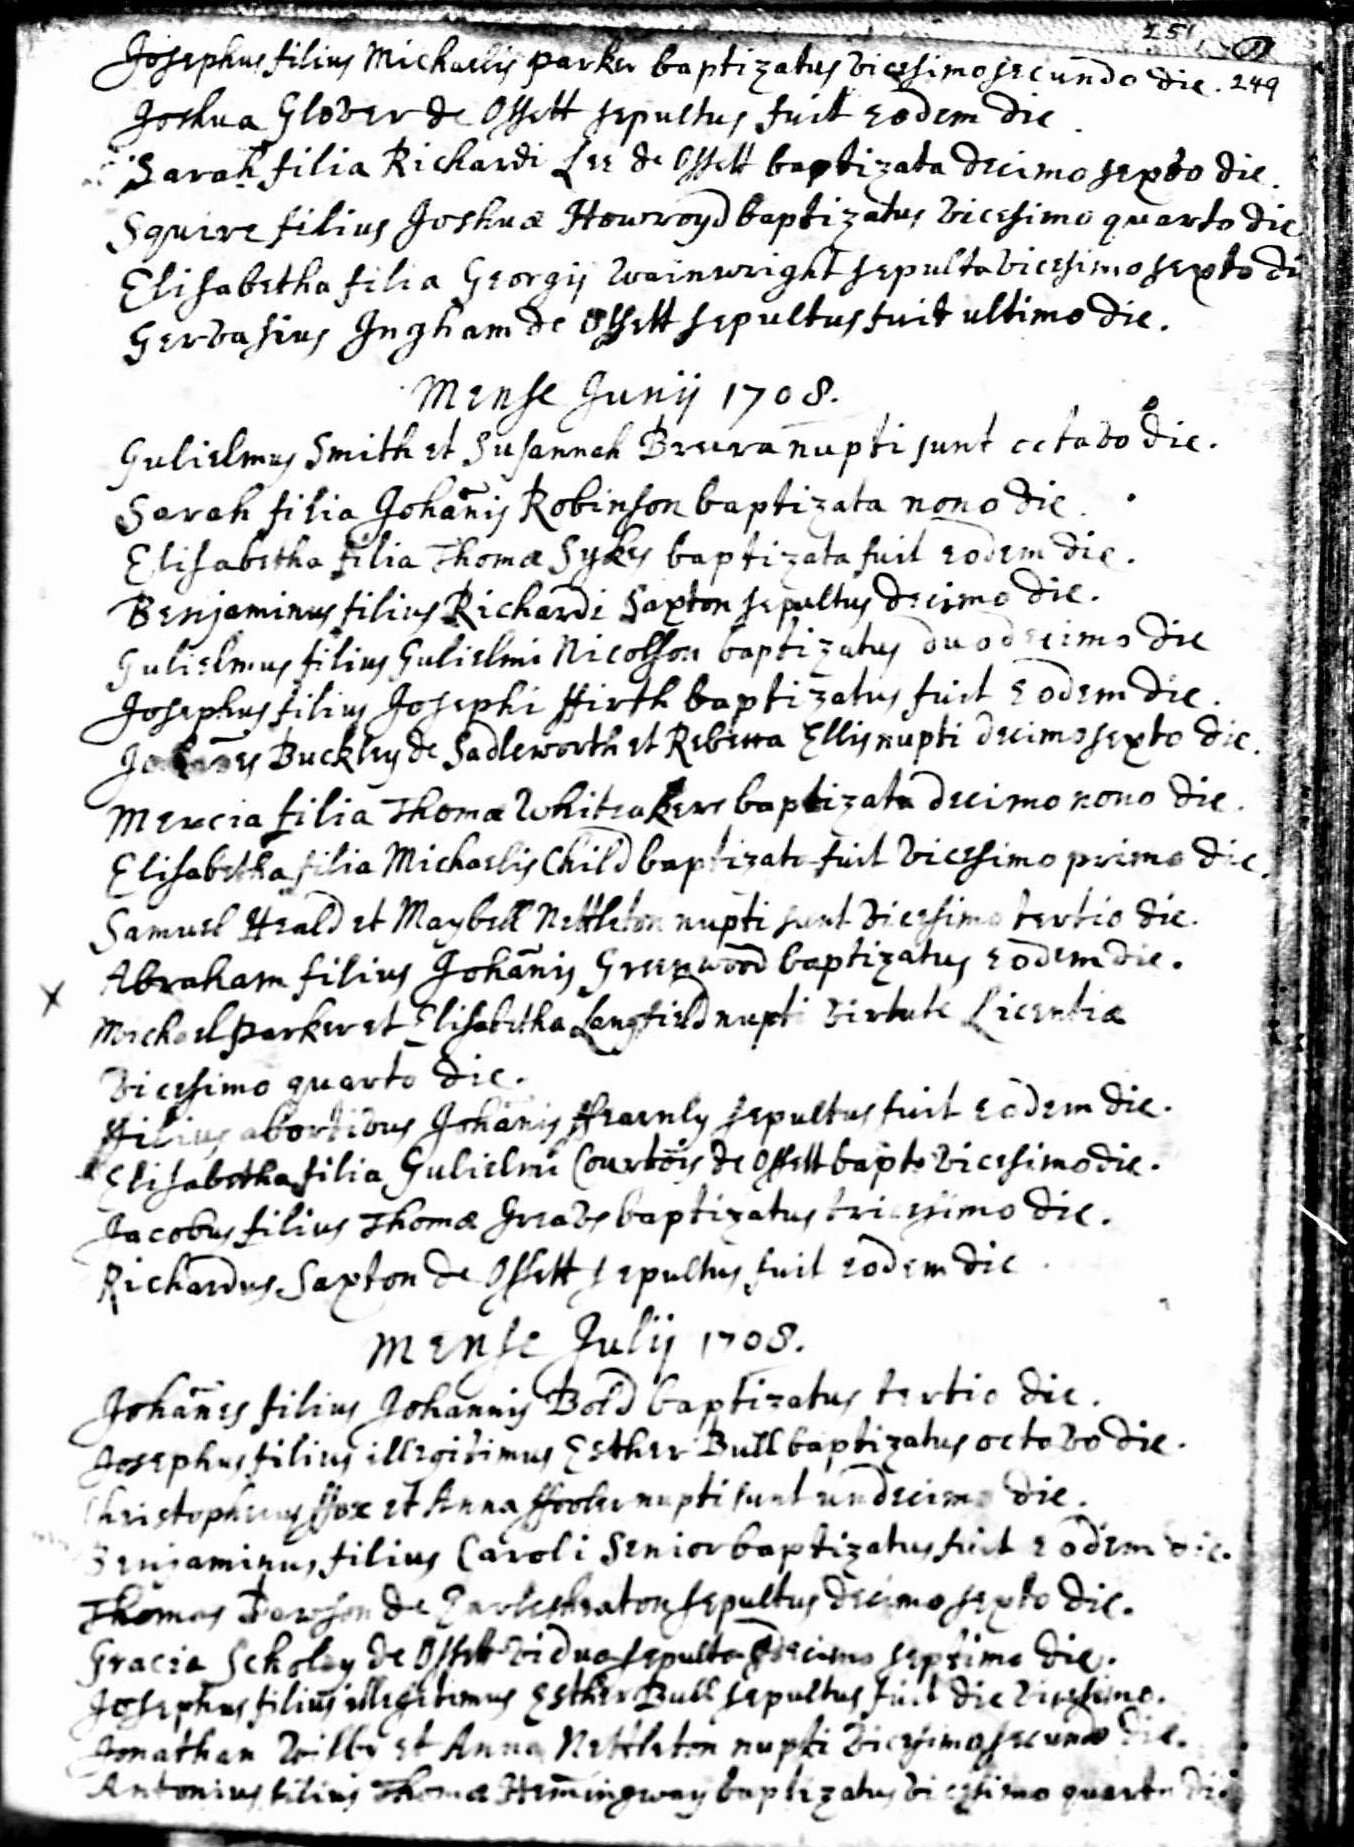 251
249
Josephus filius Michaelis Parker baptizatus vicesimo secundo die.
Joshua Glover de Ossett sepultus fuit eodem die.
Sarah filia Richardi Lee de Ossett baptizata decimo sexto die.
Squire filius Joshuæ Howroyd baptizatus vicesimo quarto die
Elisabetha filia Georgij Wainwright sepulta vicesimo sexto di
Gervasius Ingham de Ossett sepultus fuit ultimo die.
Mense Junij 1708.
Gulielmus Smith et Susannah nupti sunt octavo die.
Sarah filia Johan̄is Robinson baptizata nono die.
Elisabetha filia Thomæ Sykes baptizata fuit eodem die.
Benjaminus filius Richardi Saxton sepultus decimo die.
Gulielmus filius Gulielmi Nicolson baptizatus duodecimo die
Josephus filius Josephi ffirth baptizatus fuit eodem die.
Johan̄es Buckley de Sadleworth et Rebecca Ellis nupti decimo sexto die.
Mercia filia Thomæ Whiteakere baptizata decimo nono die.
Elisabetha filia Michaelis Child baptizata fuit vicesimo primo die.
Samuel Heald et Maybell Nettleton nupti sunt vicesimo tertio die.
Abraham filius Johan̄is Greenwood baptizatus eodem die.
x Michael Parker et Elisabetha Langfield nupti virtute Licentiæ
vicesimo quarto die.
ffilius abortivus Johan̄is ffearnly sepultus fuit eodem die.
Elisabetha filia Gulielmi Courtois de Ossett bapt vicesimo die.
Jacobus filius Thomæ Greavs baptizatus tricesimo die.
Richardus Saxton de Ossett sepultus fuit eodem die.
Mense Julij 1708.
Johan̄es filius Johannis Bold baptizatus tertio die.
Josephus filius illegitimus Esther Bull baptizatus octavo die.
Christopherus ffox et Anna nupti sunt undecimo die.
Benjaminus filius Caroli Senior baptizatus fuit eodem die.
Thomas Dawson de Earlesheaton sepultus decimo sexto die.
Gracia Scholey de Ossett vidua sepulta decimo septimo die.
Josephus filius illegitimus Esther Bull sepultus fuit die vicesimo.
Jonathan Wilby et Anna Nettleton nupti vicesimo secundo die.
Antonius filius Thomæ Hem̄ingway baptizatus vicesimo quarto die.